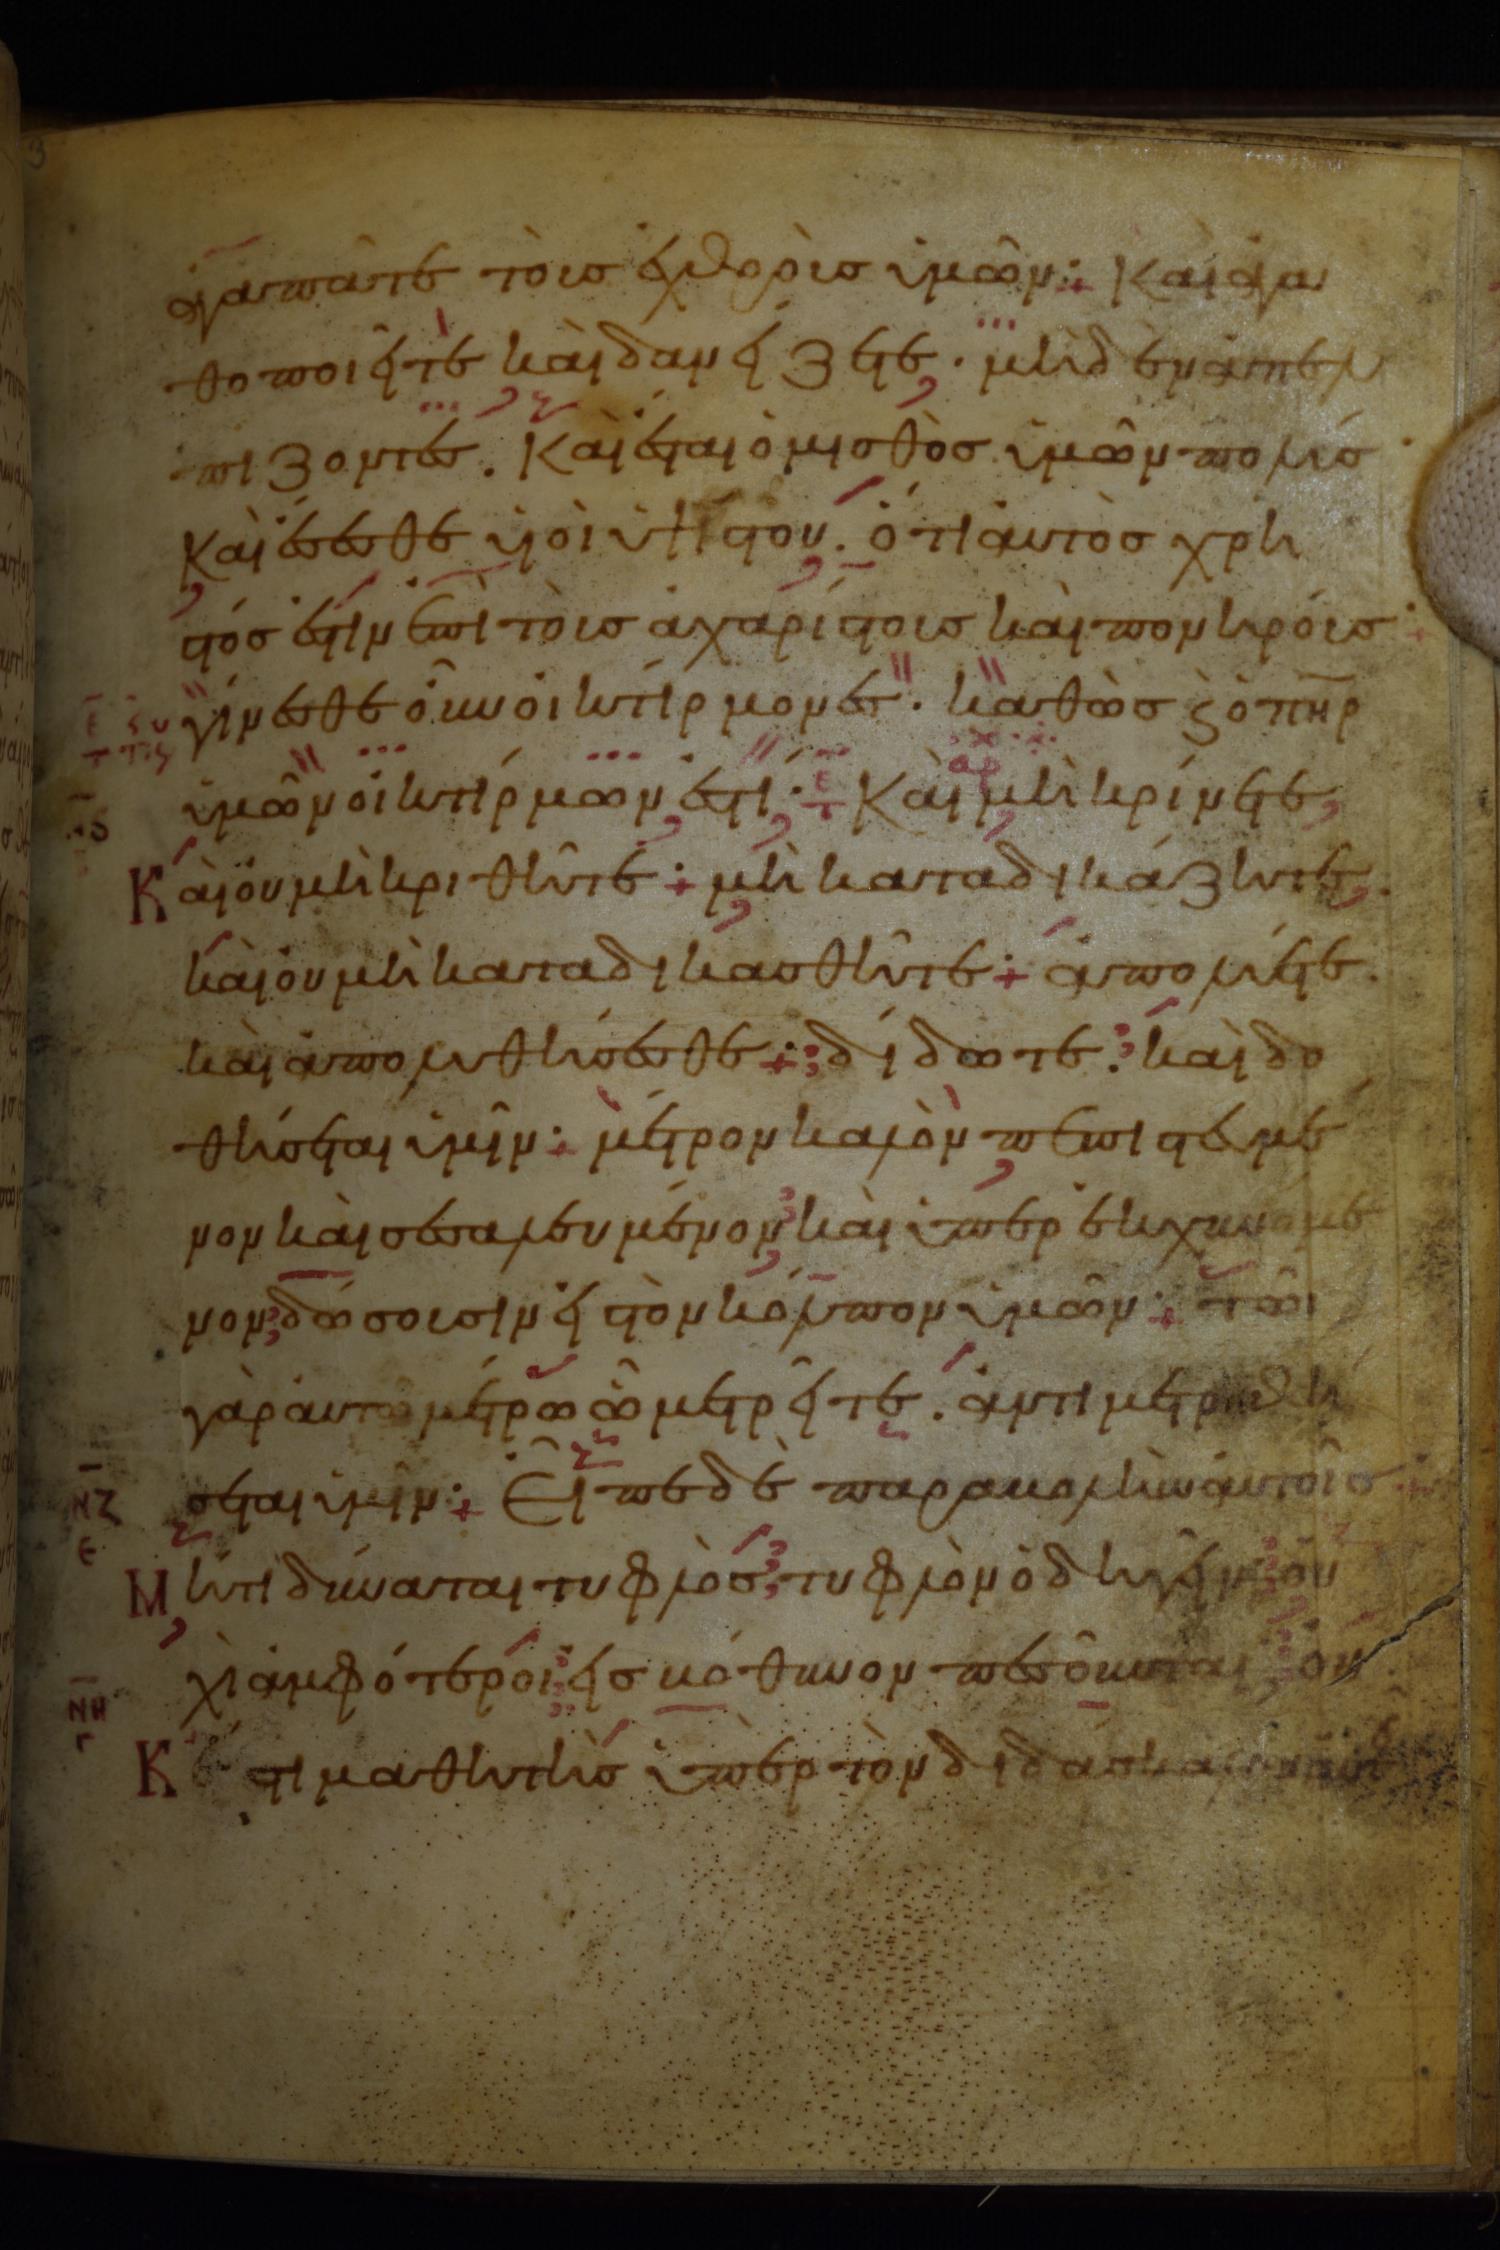 ἀγαπᾶτε τοὺσ ἐχθροὺσ ὑμῶν· καὶ ἀγα
θοποιεῖτε καὶ δανείζετε· μηδὲν ἀπελ
πίζοντεσ. Καὶ ἔσται ὁ μισθὸσ ὑμῶν πολύσ·
καὶ ἔσεσθε υἱοὶ ὑψίστου. ὅτι αὐτὸσ χρη
στόσ ἐστιν ἐπὶ τοὺσ ἀχαρίστουσ καὶ πονηρούσ·
γίνεσθε οὖν οἰκτίρμονεσ· καθὼσ καὶ ὁ πηρ
ὑμῶν οἰκτίρμων ἐστί· Καὶ μὴ κρίνετε,
Καὶ οὐ μὴ κριθῆτε· μὴ καταδικάζητε,
καὶ οὐ μὴ καταδικασθῆτε· ἀπολύετε.
καὶ ἀπολυθήσεσθε· δίδοτε. καὶ δο
θήσεται ὑμῖν· μέτρον καλὸν πεπιεσμέ
νον καὶ σεσαλευμένον καὶ ὑπερεκχυνομέ
νον δώσουσιν εἰς τὸν κόλπον ὑμῶν· τῶι
γὰρ αὐτῶ μέτρω ὧ μετρεῖτε. ἀντιμετρηθή
σεται ὑμῖν· Εἶπε δὲ παραβολὴν αὐτοῖσ·
Μήτι δύναται τυφλὸσ τυφλὸν ὁδηγεῖν οὐ
χὶ ἀμφότεροι εἰσ βόθυνον πεσοῦνται οὐκ
ἔστι μαθητὴσ ὑπὲρ τὸν διδάσκαλον
Ε
Τ
ΝΖ
Ε
ΝΗ
Γ